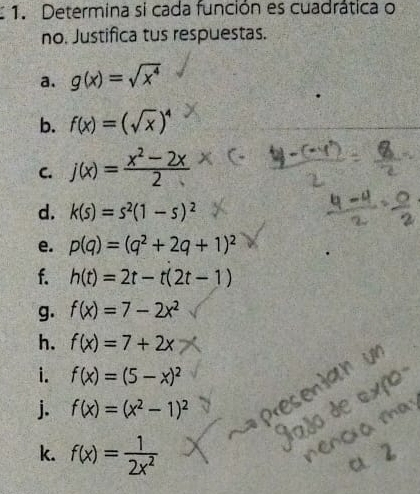 1. Determina si cada función es cuadrática o
no. Justifica tus respuestas.
a. g(x) = √x⁴ ✓
b. f(x) = (√x)⁴ ✗
c. j(x) = (x² − 2x)/2 ✗
d. k(s) = s²(1 − s)² ✗
4-4/2 = 0/2
e. p(q) = (q² + 2q + 1)²
f. h(t) = 2t − t(2t − 1)
g. f(x) = 7 − 2x² ✓
h. f(x) = 7 + 2x ✗
i. f(x) = (5 − x)² ✓
j. f(x) = (x² − 1)² ✓
k. f(x) = 1/(2x²) ✗
presentan un
grado de expo-
nencia
a 2